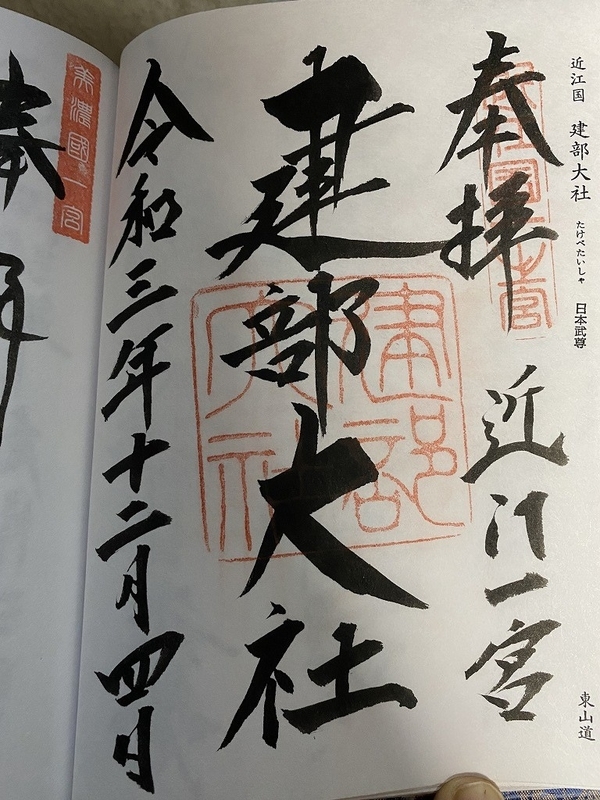 近江国 建部大社 たけべたいしゃ 日本武尊 東山道
奉拝 近江一宮
建部大社
令和三年十二月四日
建部大社
美濃國一宮
奉拝